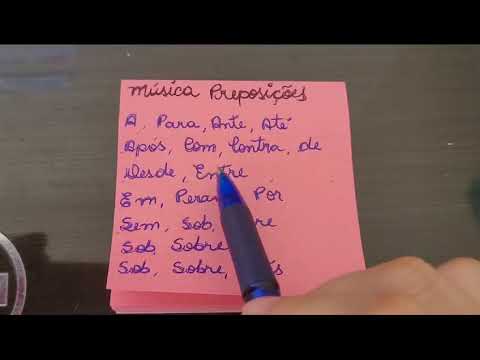 Música Preposições
A, Para, Ante, Até
Após, Com, Contra, de
Desde, Entre
Em, Pera Por
Sem, Sob, re
Sob Sobre
Sob, Sobre, ás